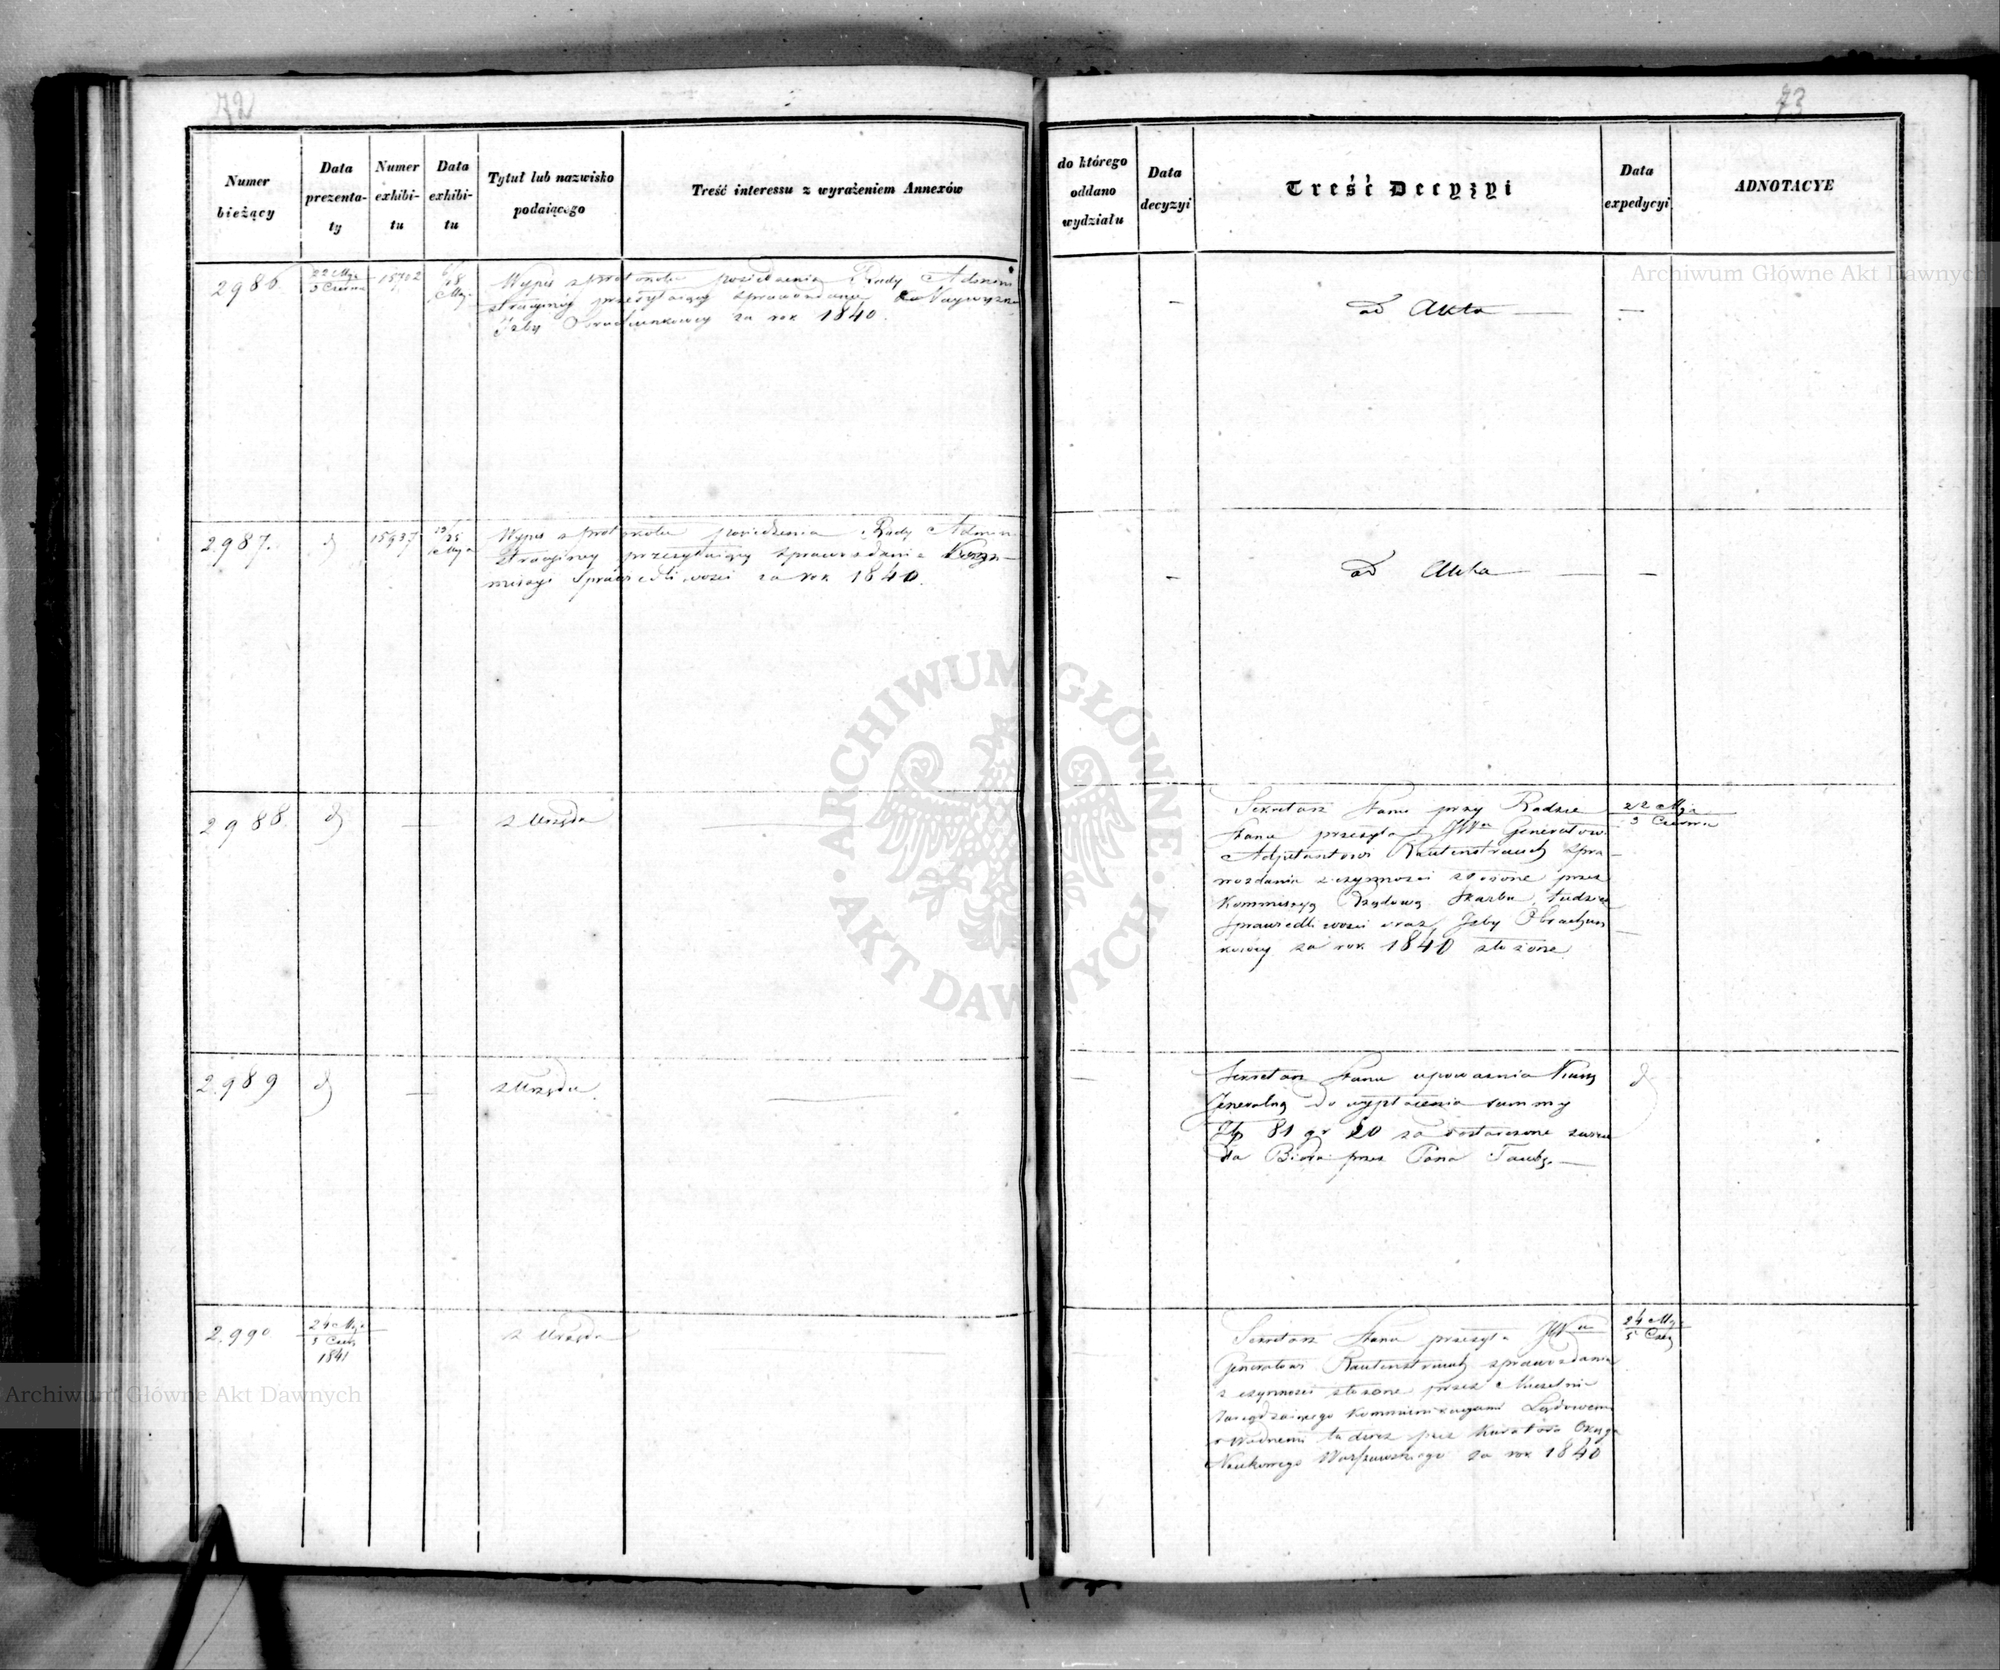 72
73
Numer
bieżący
Data
prezenta-
ty
Numer
exhibi-
tu
Data
exhibi-
tu
Tytuł lub nazwisko
podaiącego
Treść interessu z wyrażeniem Annexów
do którego
oddano
wydziału
Data
decyzyi
Treść Decyzyi
Data
expedycyi
ADNOTACYE
2986.
22 Maja
3 Czerwca
6/18
Maja
Wypis z protokołu posiedzenia Rady Admini
stracyiney przesyłaiący sprawozdanie Naywyższey
Izby Obrachunkowey za rok 1840.
—
ad Acta —
—
2987.
d
15937
13/25
Maja
Wypis z protokołu posiedzenia Rady Admini
stracyiney przesyłaiący sprawozdanie Kom
missyi Sprawiedliwości za rok 1840.
—
ad Acta —
—
2988.
d
—
z Urzędu
—
Sekretarz Stanu przy Radzie
Stanu przesyła JWmu Generałowi
Adjutantowi Rautenstrauch spra
wozdania z czynności złożone przez
Kommissyą Rządową Skarbu, tudzież
Sprawiedliwości oraz Izby Obrachun
kowey za rok 1840 złożone
22 Maja
3 Czerwca
2989
d
—
z Urzędu.
—
Sekretarz Stanu upoważnia Kassę
Generalną do wypłacenia summy
Złp 81 gr 20 za dostarczone
dla Biura przez Pana
d
2990
24 Maja
5 Czer
1841
z Urzędu
—
Sekretarz Stanu przesyła JWmu
Generałowi Rautenstrauch sprawozdania
z czynności złożone przez Naczelnie
Zarządzaiącego Kommunikacyami Lądowemi
i Wodnemi tudzież przez Kuratora Okręgu
Naukowego Warszawskiego za rok 1840
24 Maja
5 Czer
ARCHIWUM GŁÓWNE
AKT DAWNYCH
Archiwum Główne Akt Dawnych
Archiwum Główne Akt Dawnych